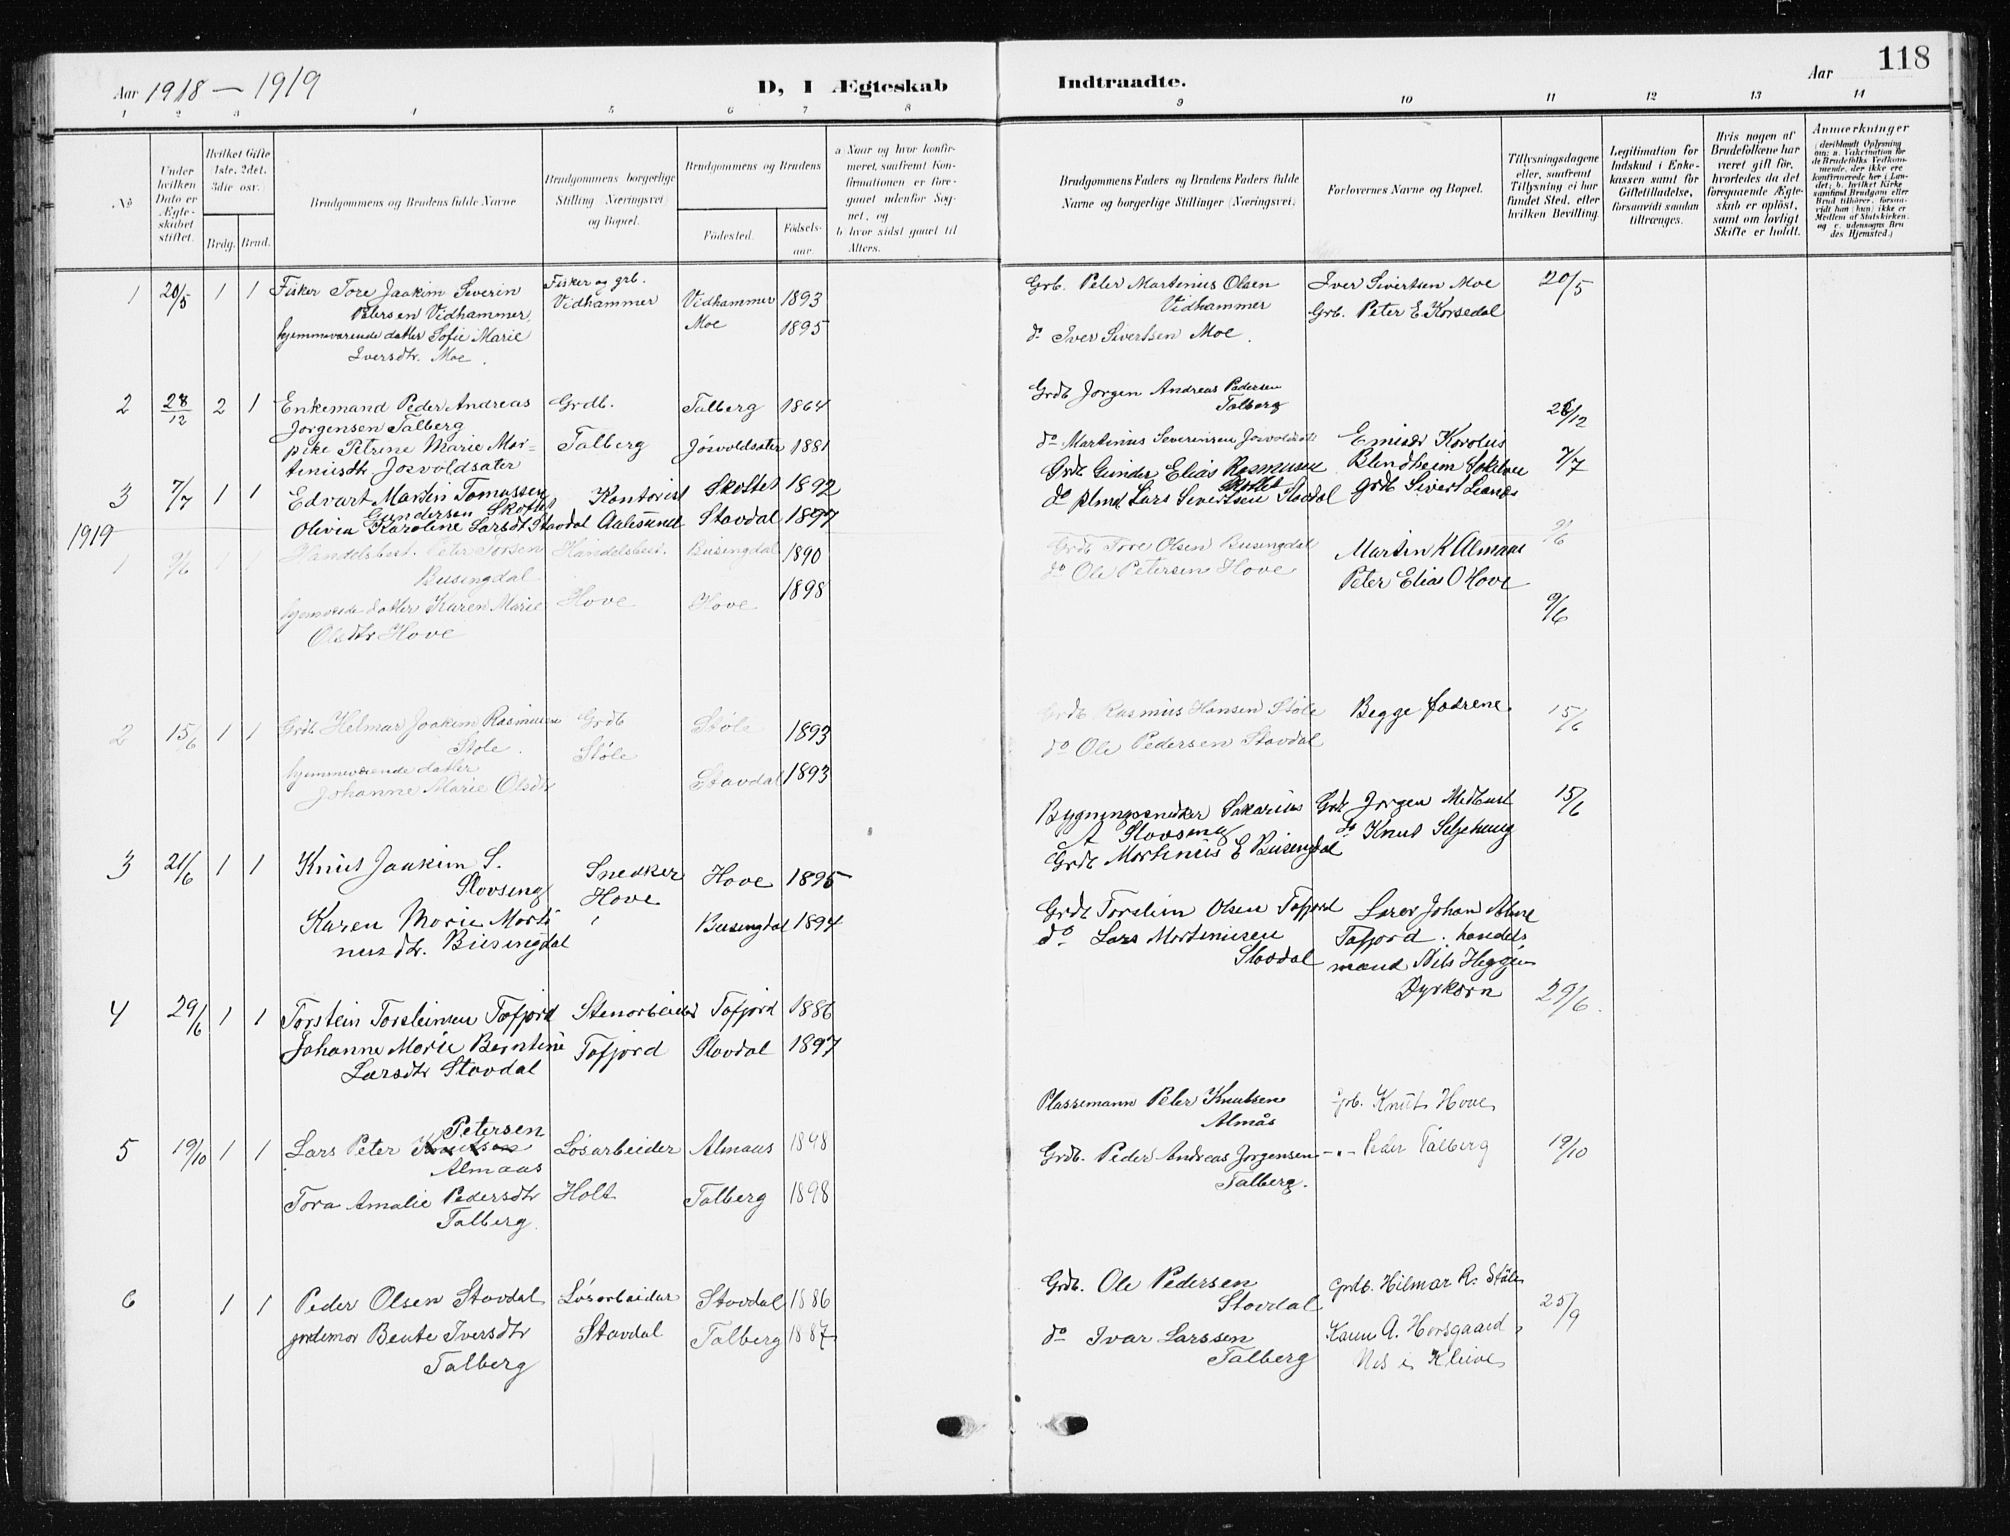 118
Aar 1918 — 1919
D, I Ægteskab
Indtraadte.
Aar
1 2 3 4 5 6 7 8
9 10 11 12 13 14
No
Under hvilken Dato er Ægteskabet stiftet.
Hvilket Gifte 1ste. 2det. 3die osv.
Brdg. Brud.
Brudgommens og Brudens fulde Navne
Brudgommens borgerlige Stilling (Næringsvei) og Bopæl.
Brudgommens og Brudens
Fødested. Fødselsaar
a) Naar og hvor konfirmeret, saafremt Konfirmationen er foregaaet udenfor Sognet, og
b) hvor sidst gaaet til Alters.
Brudgommens Faders og Brudens Faders fulde Navne og borgerlige Stillinger (Næringsvei).
Forlovernes Navne og Bopæl.
Tillysningsdagene eller, saafremt Tillysning ei har fundet Sted, efter hvilken Bevilling.
Legitimation for Indskud i Enkekassen samt for Giftetilladelse, forsaavidt saadan tiltrænges.
Hvis nogen af Brudefolkene har været gift før, hvorledes da det foregaaende Ægteskab er opløst, samt om lovligt Skifte er holdt.
Anmærkninger
(deriblandt Oplysning om: a. Vakcination for de Brudefolks Vedkommende, der ikke ere konfirmerede her i Landet; b. hvilket Kirkesamfund Brudgom eller Brud tilhører, forsaavidt han (hun) ikke er Medlem af Statskirken, og c. udensogns Brudes Hjemsted.)
1 20/5 1 1 Fisker Tore Joakim Severin
Petersen Vidhammer
hjemmeværende datter Sofie Marie
Iversdtr. Moe
Fisker og grb.
Vidhammer
Vidhammer 1893
Moe 1895
Grb. Peter Martinus Olsen
Vidhammer
do Iver Sivertsen Moe
Iver Sivertsen Moe
Grb. Peter E Korsedal
20/5
2 28/12 2 1 Enkemand Peder Andreas
Jørgensen Talberg
pike Petrine Marie Mar-
tinusdtr Josvoldsæter
Grdb.
Talberg
Talberg 1864
Josvoldsæter 1881
Grdb Jørgen Andreas Pedersen
Talberg
do Martinus Severinsen Josvoldsæt
Emisær Karolus
Blindheim
28/12
3 7/7 1 1 Edvart Martin Tomassen
Gundersen Skottet
Olivia Karoline Larsdt Stavdal
Kontorist
Aalesund
Skottet 1892
Stavdal 1897
Grdb Gunder Elias Rasmusen
Skottet
do Lars Sivertsen Stavdal
Grdb Sivert
7/7
1919
1 9/6 1 1 Handelsbest. Peter Torsen
Busengdal
hjemvæde datter Karen Marie
Olsdtr Hove
Handelsbest.
Hove
Busengdal 1890
Hove 1898
Grdb Tore Olsen Busengdal
do Ole Petersen Hove
Martin K Almaas
Peter Elias O Hove
9/6
9/6
2 15/6 1 1 Grdb Helmar Joakim Rasmusen
Støle
hjemmeværende datter
Johanne Marie Olsdtr
Grdb
Støle
Støle 1893
Stavdal 1893
Grdb Rasmus Hansen Støle
do Ole Pedersen Stavdal
Begge fædrene
15/6
3 21/6 1 1 Knut Joakim S.
Slovseng
Karen Marie Marti
nusdtr. Busengdal
Snedker
Hove
Hove 1895
Busengdal 1894
Bygningssnedker Sakarias
A Slovseng
Grdb Martinus E Busengdal
Grdb Jørgen Midtbust
do Knut Seljehaug
15/6
4 29/6 1 1 Torstein Torsteinsen Tafjord
Johanne Marie Berntine
Larsdtr Stavdal
Stenarbeider
Tafjord
Tafjord 1886
Stavdal 1897
Grdb Torstein Olsen Tafjord
do Lars Martinusen
Stavdal
Lærer Johan
Tafjord. handels
mand Nils Heggen
Dyrkorn
29/6.
5 19/10 1 1 Lars Peter Knutsen Petersen
Almaas
Tora Amalie Pedersdtr
Talberg.
Løsarbeider
Holt
Almaas 1898
Talberg 1898
Plassemann Peter Knutsen
Almås
Grdb. Peder Andreas Jorgensen
Talberg.
Grb. Knut Hove
-"- Peder Talberg
19/10
6 1 1 Peder Olsen Stavdal
jordemor Beate Iversdtr
Talberg
Løsarbeider
Stavdal
Stavdal 1886
Talberg 1887
Grdb. Ole Pedersen
Stavdal
do Ivar Larssen
Talberg
Grdb. Hilmar R. Støle
Karen A. Horsgaard
Nes i Kleive
25/9